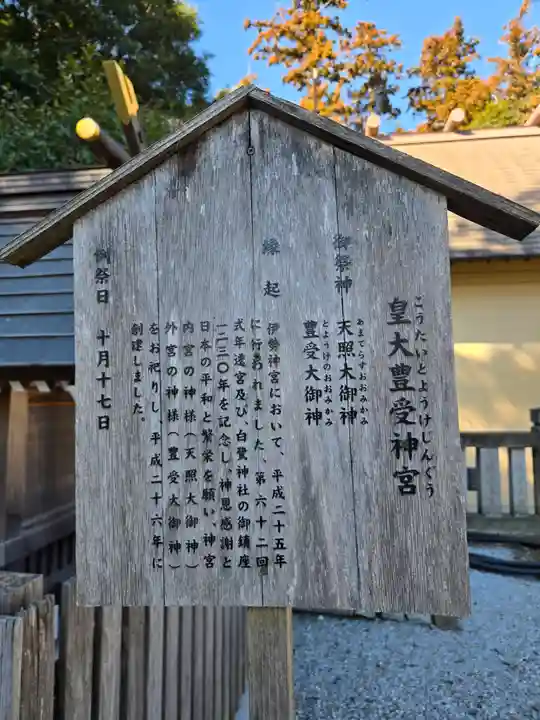 こうたいとようけじんぐう
皇大豊受神宮
御祭神
あまてらすおおみかみ
天照大御神
とようけのおおみかみ
豊受大御神
縁起
伊勢神宮において、平成二十五年
に行われました、第六十二回
式年遷宮及び、白鷺神社の御鎮座
一二三〇年を記念し、神恩感謝と
日本の平和と繁栄を願い、神宮
内宮の神様(天照大御神)
外宮の神様(豊受大御神)
をお祀りし、平成二十六年に
創建しました。
例祭日 十月十七日